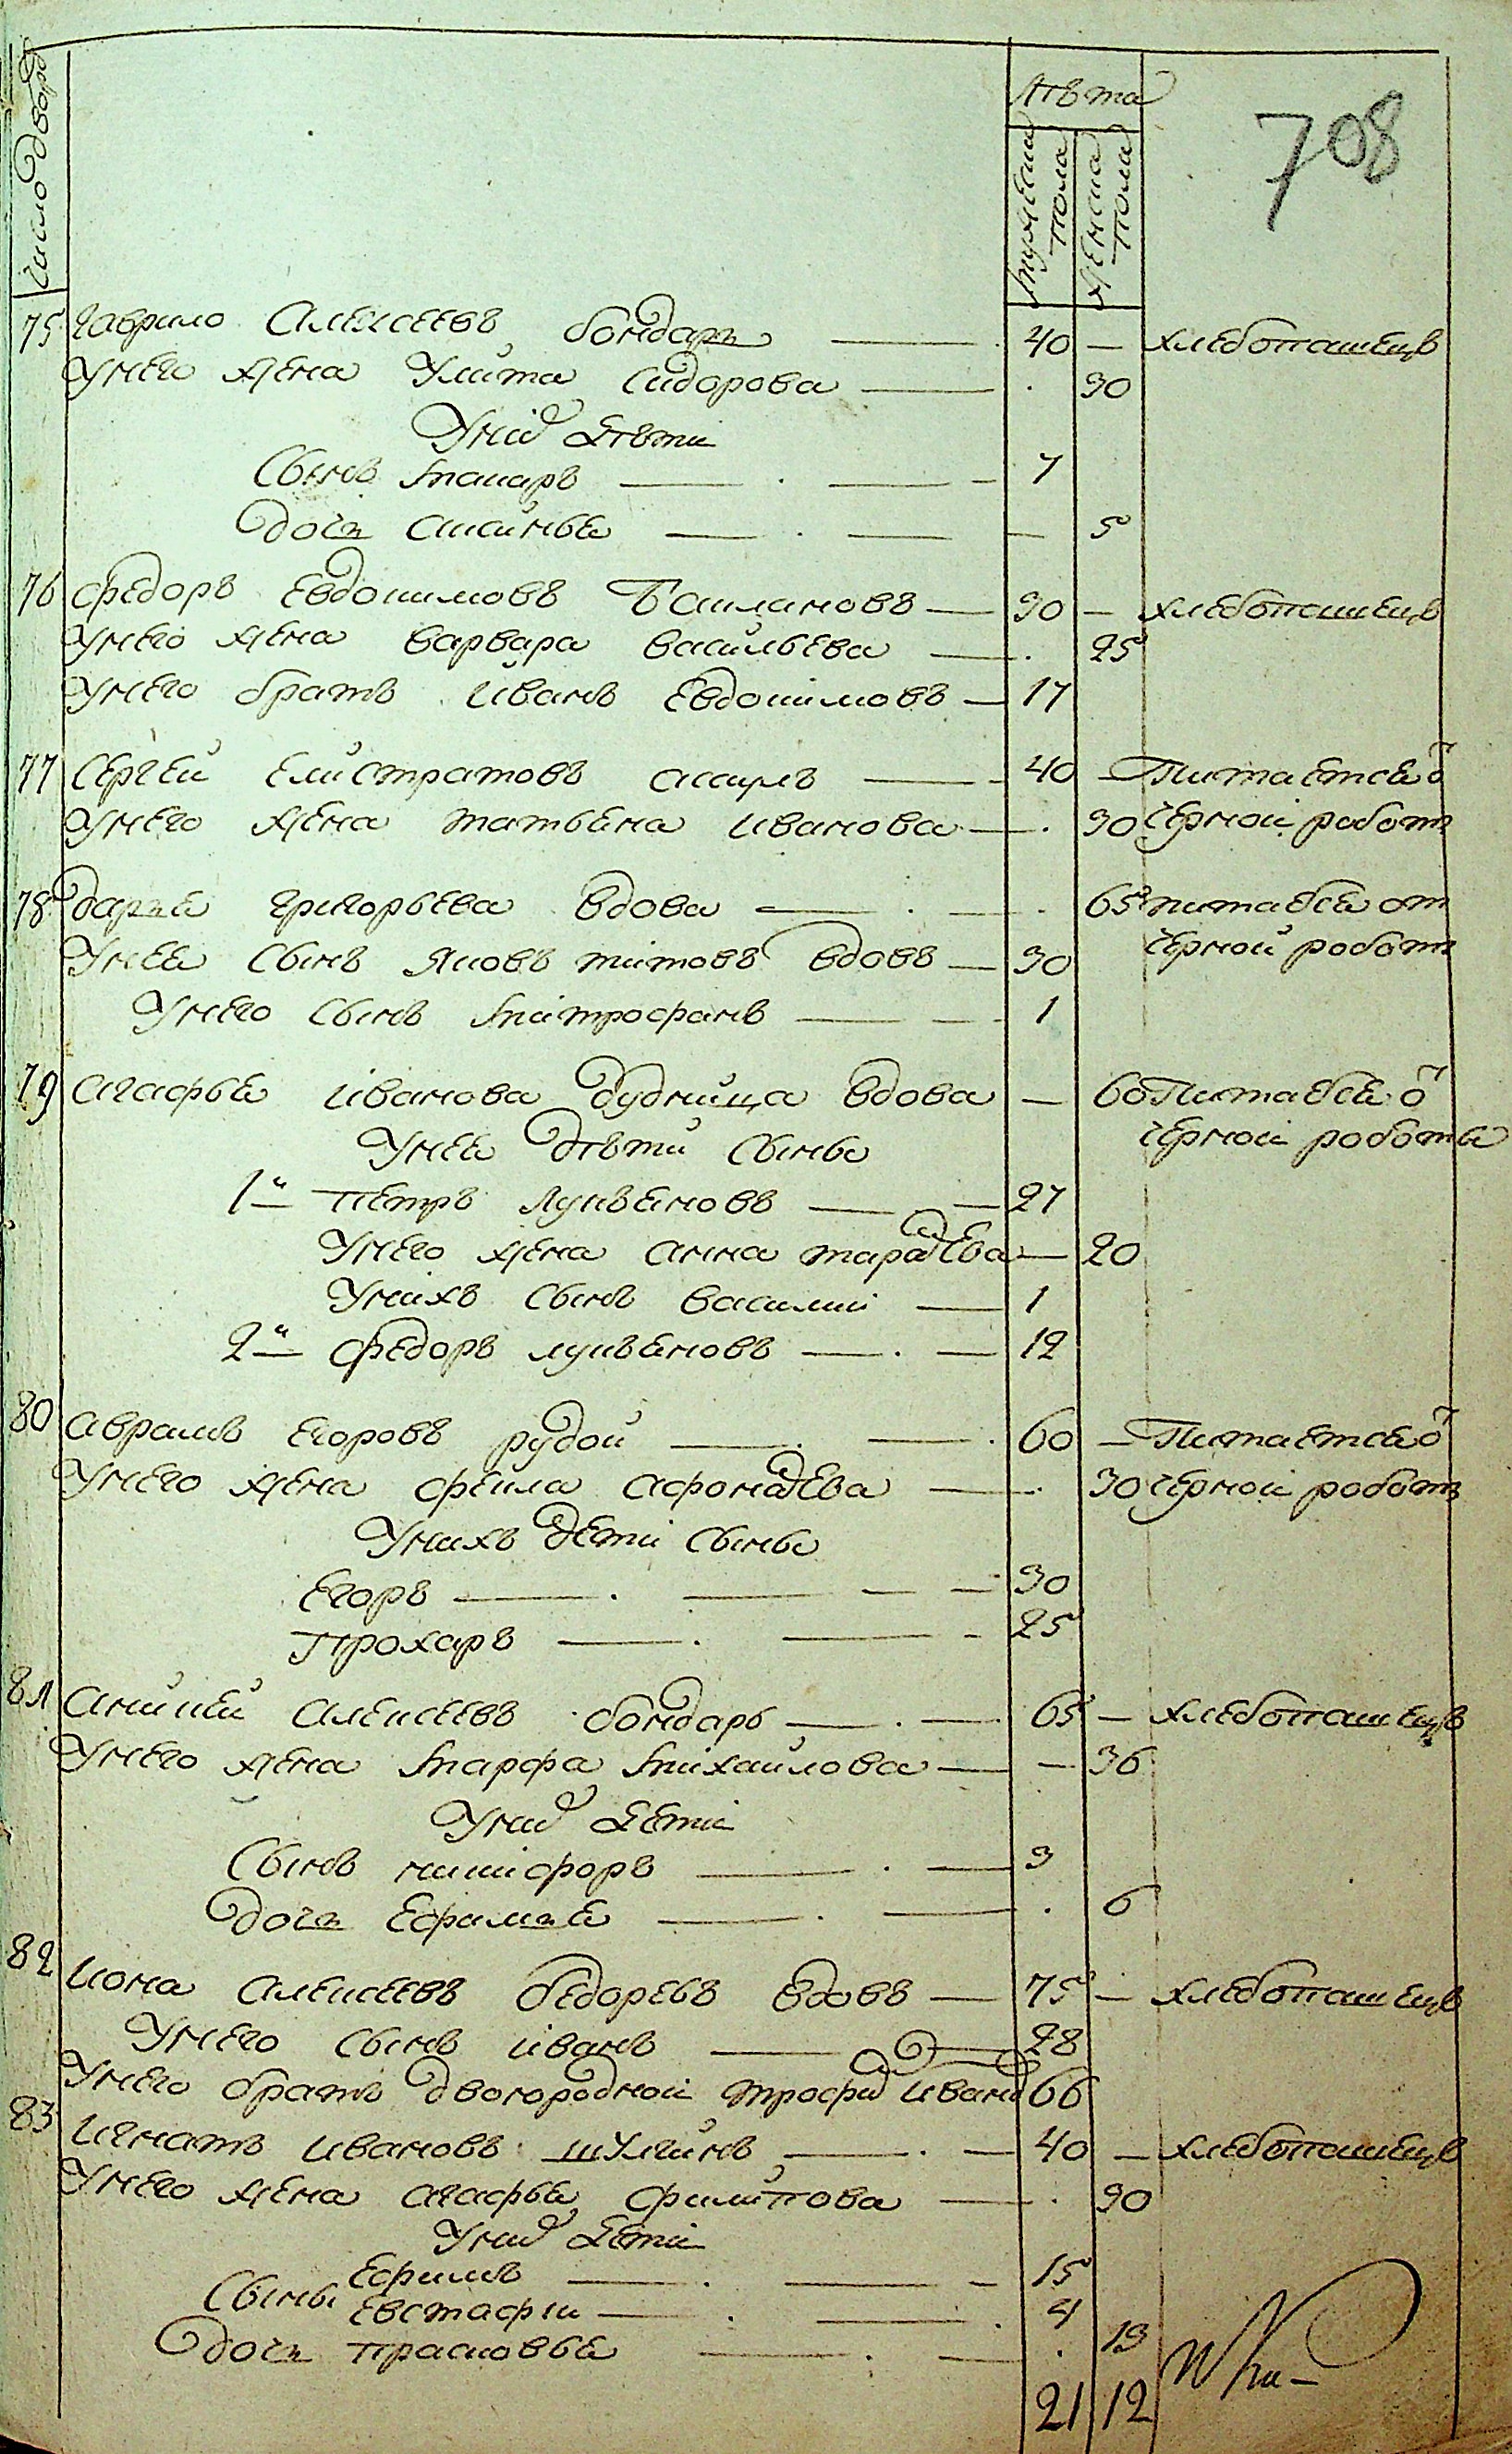 число дворо
лѣта
708
мужеска пола
женска пола
75 Гаврило Алексеевъ бондарь 40 — хлебопашецъ
Унего жена Улита Сидорова . 30
Уних дѣти
Сынъ Макаръ 7
дочь Аксинья — 5
76 Федоръ Евдокимовъ Баклановъ 30 — хлебопашецъ
Унего жена варвара васильева . 25
Унего братъ Иванъ Евдокимовъ 17
77 Сергей Елистратовъ 40 — Питается о
Унего жена татьяна иванова . 30 черной работ
78 дарья григорьева вдова . 65 питаеся от
Унея Сынъ Яковъ титовъ вдовъ 30 черной работ
Унего Сынъ Митрофанъ 1
79 агафья иванова дудница вдова — 60 Питаеся о
Унея дѣти Сынья черной работы
1й Петръ Лукьяновъ 27
Унего жена анна тарасева — 20
Унихъ Сынъ василий 1
2й Федоръ лукьяновъ 12
80 аврамъ Егоровъ рудой 60 — Питается о
Унего жена фекла Афонасева . 30 черной работ
Унихъ дети Сынья
Егоръ 30
Прохаръ 25
81 аникей алексеевъ бондарь 65 — хлебопашецъ
Унего жена Марфа Михайлова — 36
Уних дети
Сынъ никифоръ 3
дочь Ефимья . 6
82 Иона алексеевъ вдовъ 75 — хлебопашецъ
Унего Сынъ иванъ 28
Унего братъ двоюродной трофи иванов 66
83 Игнатъ ивановъ шУлгинъ 40 — хлебопашецъ
Унего жена агафья филипова . 30
Уних дети
Сынья Ефимъ 15
Евстафии 4
дочь прасковья . 13
21 12